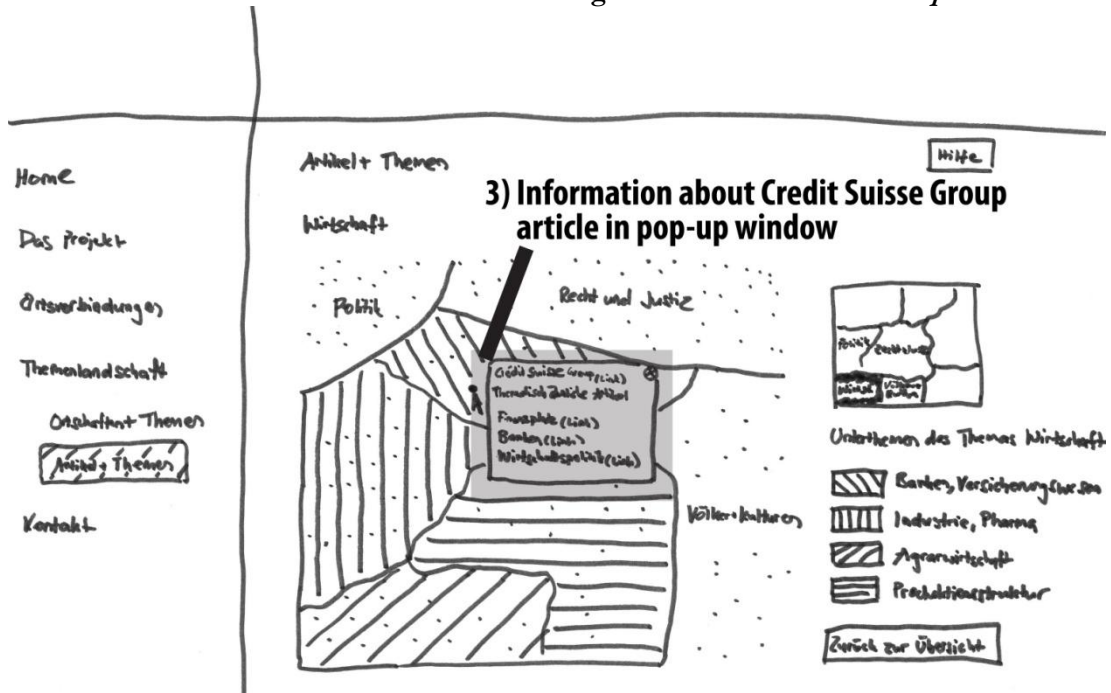 Home
Das Projekt
Ortsverbindungen
Themenlandschaft
Ortschaften+ Themen
Artikel+ Themen
Kontakt
Artikel+ Themen
Hilfe
3) Information about Credit Suisse Group
article in pop-up window
Wirtschaft
Politik
Recht und Justiz
Crédit Suisse Group (Link)
Thematisch ähnliche Artikel
Finanzplatz (Link)
Banken (Link)
Wirtschaftspolitik (Link)
Völker+Kulturen
Politik
Unterthemen des Themas Wirtschaft
Banken, Versicherungswesen
Industrie, Pharma
Agrarwirtschaft
Produktionsstruktur
Zurück zur Übersicht